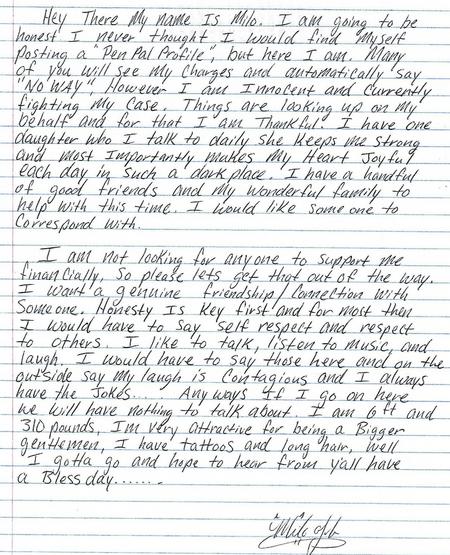 Hey There My name Is Milo. I am going to be
honest I never thought I would find myself
posting a "Pen Pal Profile", but here I am. Many
of you will see my charges and automatically say
"NO WAY" However I am Innocent and currently
fighting my case. Things are looking up on my
behalf and for that I am Thankful. I have one
daughter who I talk to daily she keeps me strong
and most Importantly makes my Heart Joyful
each day in such a dark place. I have a handful
of good friends and my wonderful family to
help with this time. I would like someone to
correspond with.
I am not looking for anyone to support me
financially, so please lets get that out of the way.
I want a genuine friendship/connection with
someone. Honesty Is Key first and for most then
I would have to say self respect and respect
to others. I like to talk, listen to music, and
laugh. I would have to say those here and on the
outside say my laugh is contagious and I always
have the Jokes.... Any ways If I go on here
we will have nothing to talk about. I am 6ft and
310 pounds, I'm very attractive for being a Bigger
gentlemen, I have tattoos and long hair, well
I gotta go and hope to hear from y'all have
a Bless day.......